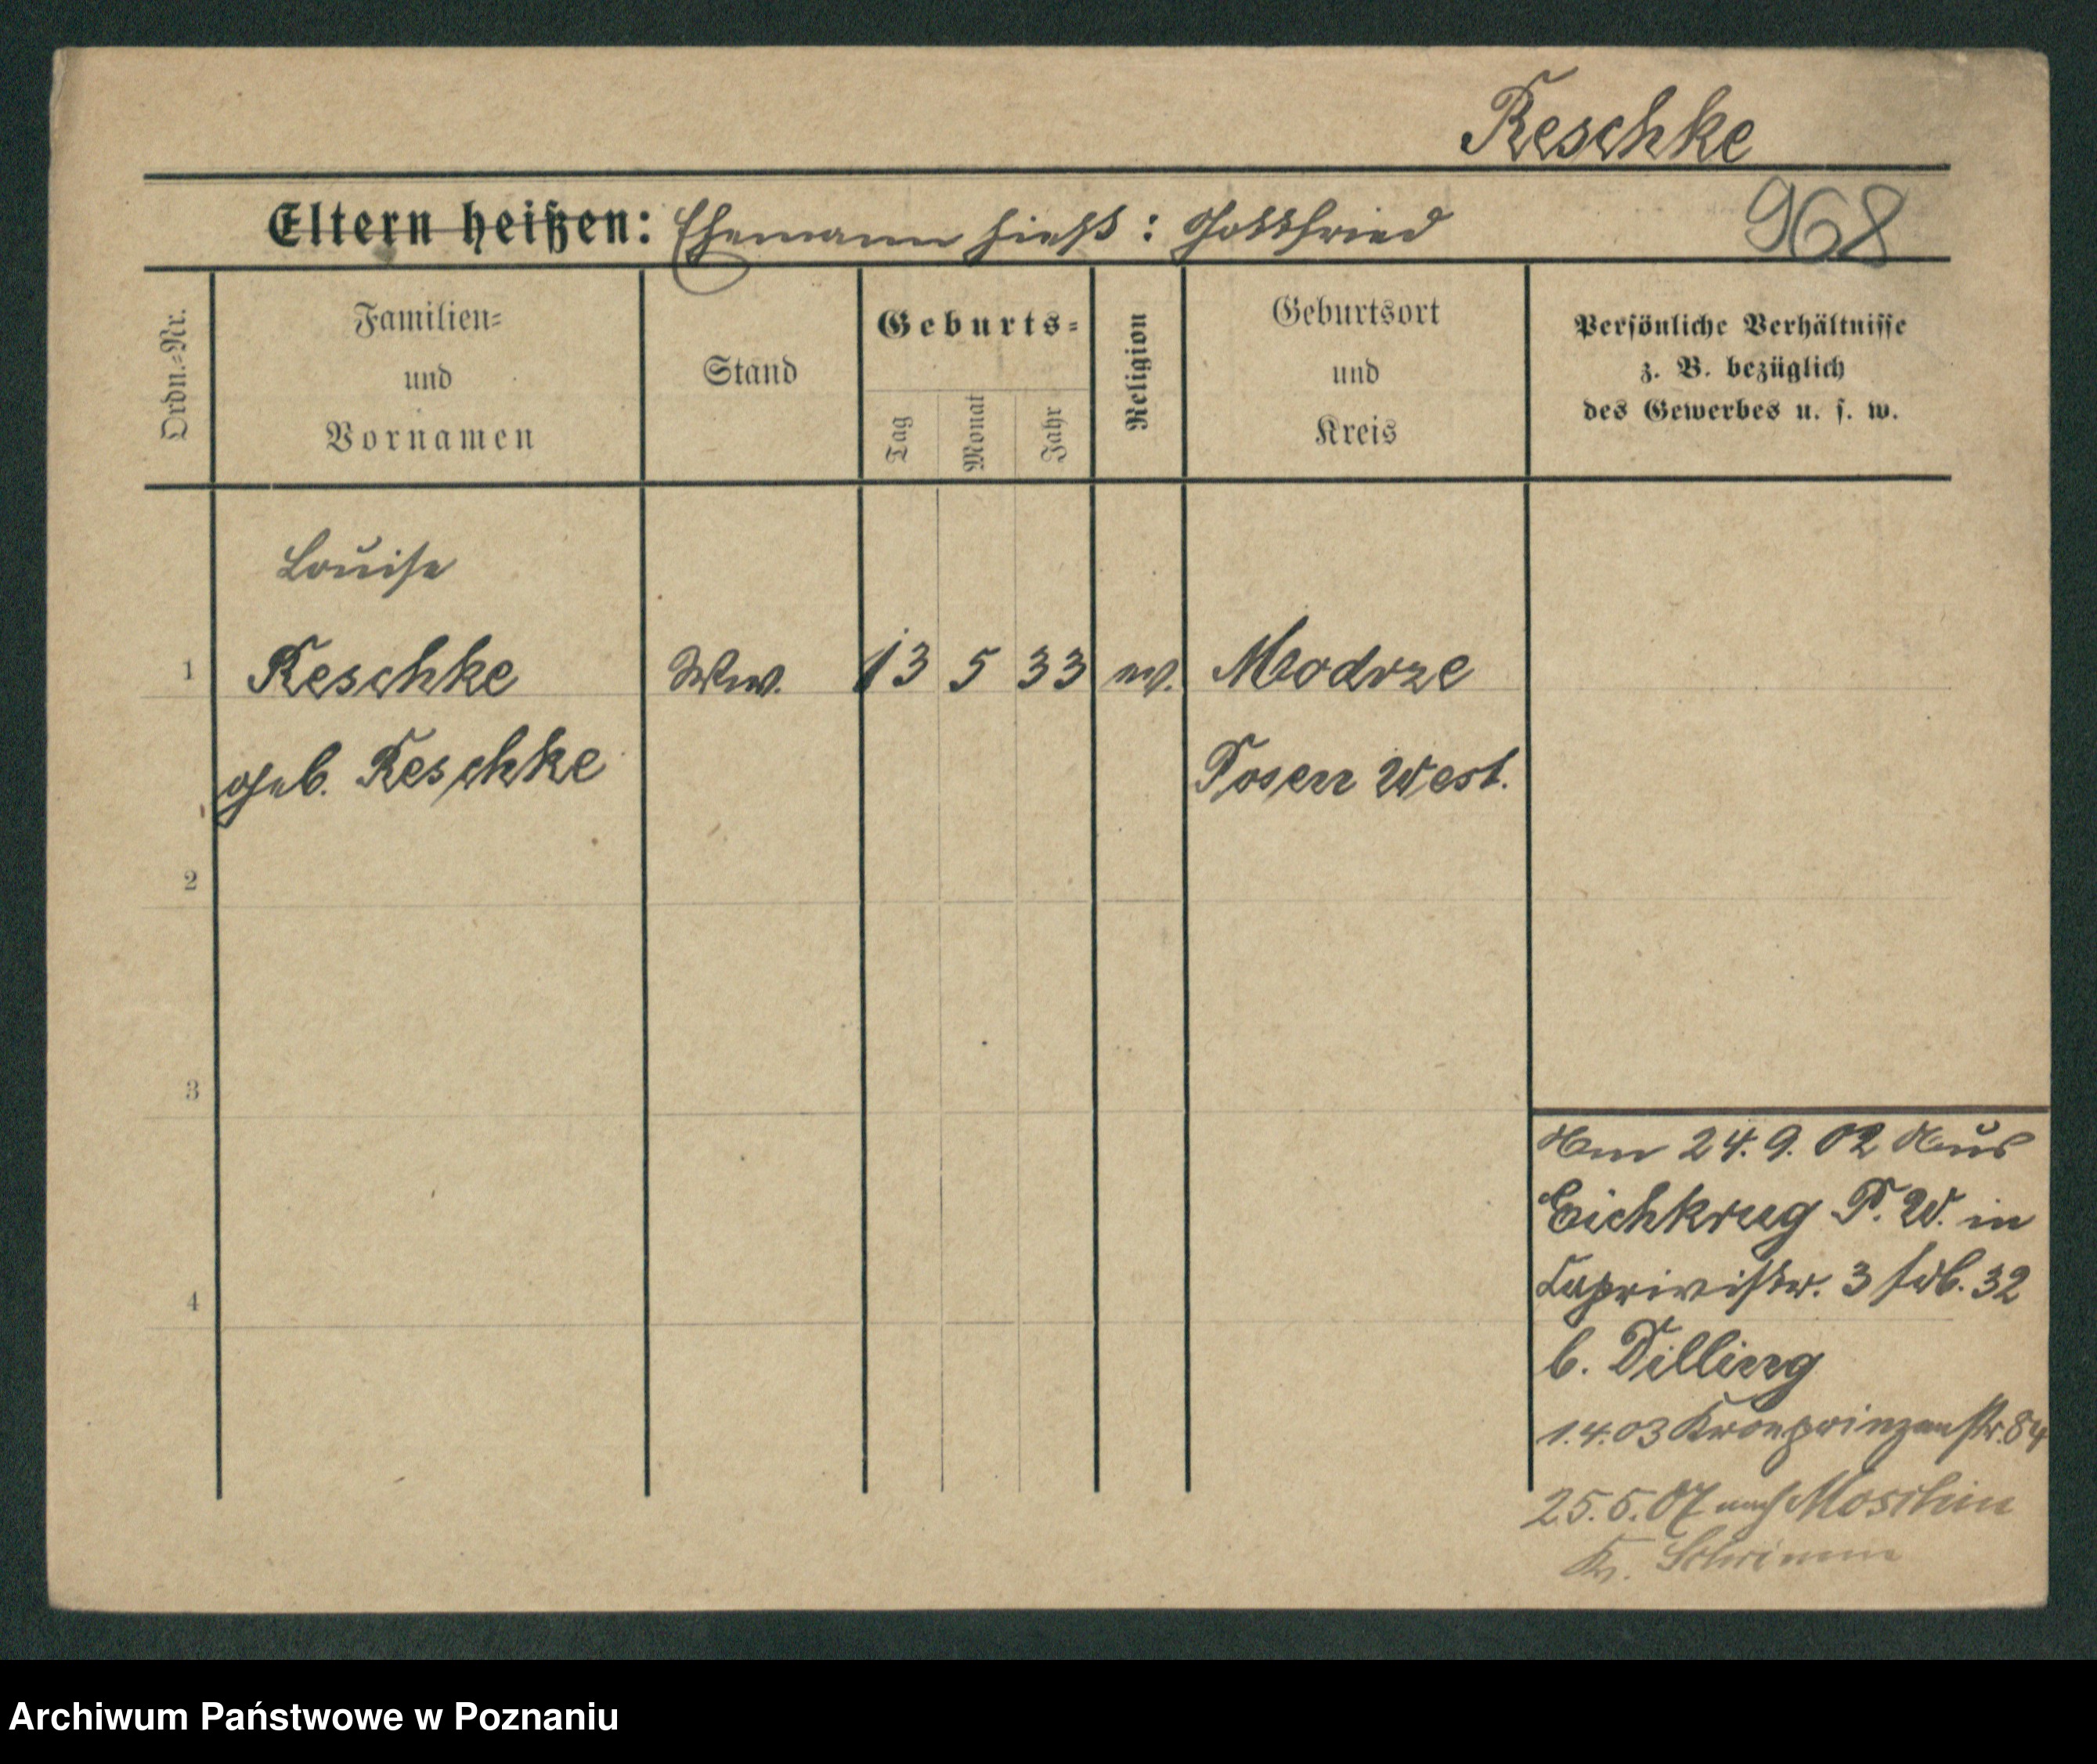 Reschke
Eltern heißen: Ehemann hieß: Gottfried
968
Ordn.-Nr.
Familien-
und
Vornamen
Stand
Geburts-
Tag
Monat
Jahr
Religion
Geburtsort
und
Kreis
Persönliche Verhältnisse
z. B. bezüglich
des Gewerbes u. s. w.
Louise
1 Reschke Ww. 13 5 33 ev. Modrze
geb. Reschke Posen West.
2
3
4
Am 24.9.02 aus
Eichkrug P. W. in
Caprivistr. 3 fdb. 32
b. Dilling
1.4.03 Kronprinzenstr. 84
25.5.07 nach Moschin
Kr. Schrimm
Archiwum Państwowe w Poznaniu